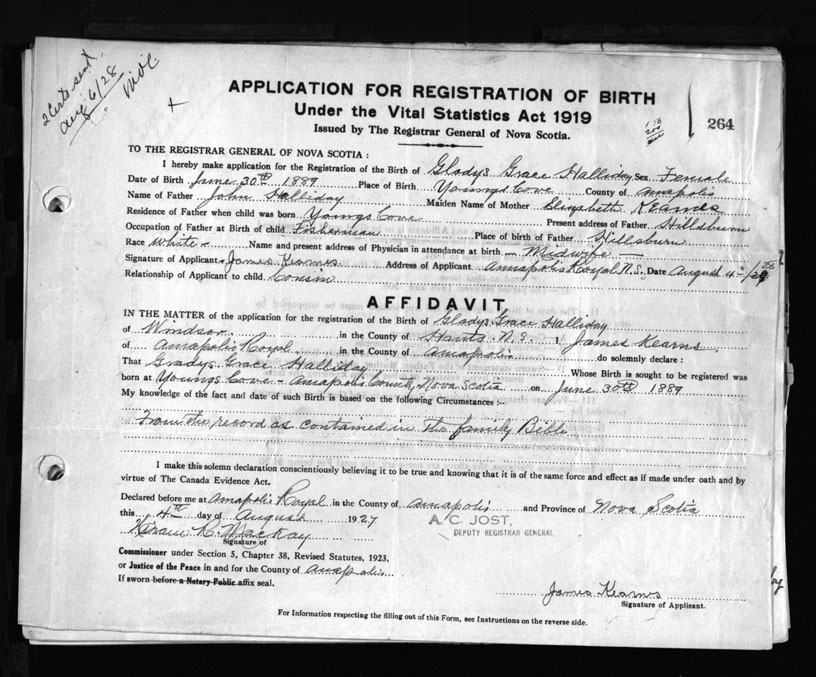 2 Certs sent
Aug 6/28
APPLICATION FOR REGISTRATION OF BIRTH
Under the Vital Statistics Act 1919
Issued by The Registrar General of Nova Scotia.
264
TO THE REGISTRAR GENERAL OF NOVA SCOTIA :
I hereby make application for the Registration of the Birth of Gladys Grace Halliday Sex Female
Date of Birth June 30th 1889 Place of Birth Youngs Cove County of Annapolis
Name of Father John Halliday Maiden Name of Mother Elizabeth Kearns
Residence of Father when child was born Youngs Cove Present address of Father Hillsburn
Occupation of Father at Birth of child Fisherman Place of birth of Father Hillsburn
Race White - Name and present address of Physician in attendance at birth - Midwife -
Signature of Applicant James Kearns Address of Applicant Annapolis Royal N.S. Date August 4th
Relationship of Applicant to child Cousin
AFFIDAVIT
IN THE MATTER of the application for the registration of the Birth of Gladys Grace Halliday
of Windsor in the County of Hants N.S. I, James Kearns
of Annapolis Royal in the County of Annapolis do solemnly declare :
That Gladys Grace Halliday Whose Birth is sought to be registered was
born at Youngs Cove - Annapolis County, Nova Scotia on June 30th 1889
My knowledge of the fact and date of such Birth is based on the following Circumstances :-
From the record as contained in the family Bible
I make this solemn declaration conscientiously believing it to be true and knowing that it is of the same force and effect as if made under oath and by
virtue of The Canada Evidence Act.
Declared before me at Annapolis Royal in the County of Annapolis and Province of Nova Scotia
this 4th day of August 1927
A/C. JOST,
DEPUTY REGISTRAR GENERAL
Hiram R. Mackay
Signature of
Commissioner under Section 5, Chapter 38, Revised Statutes, 1923,
or Justice of the Peace in and for the County of Annapolis
If sworn before a Notary Public affix seal.
James Kearns
Signature of Applicant.
For Information respecting the filling out of this Form, see Instructions on the reverse side.